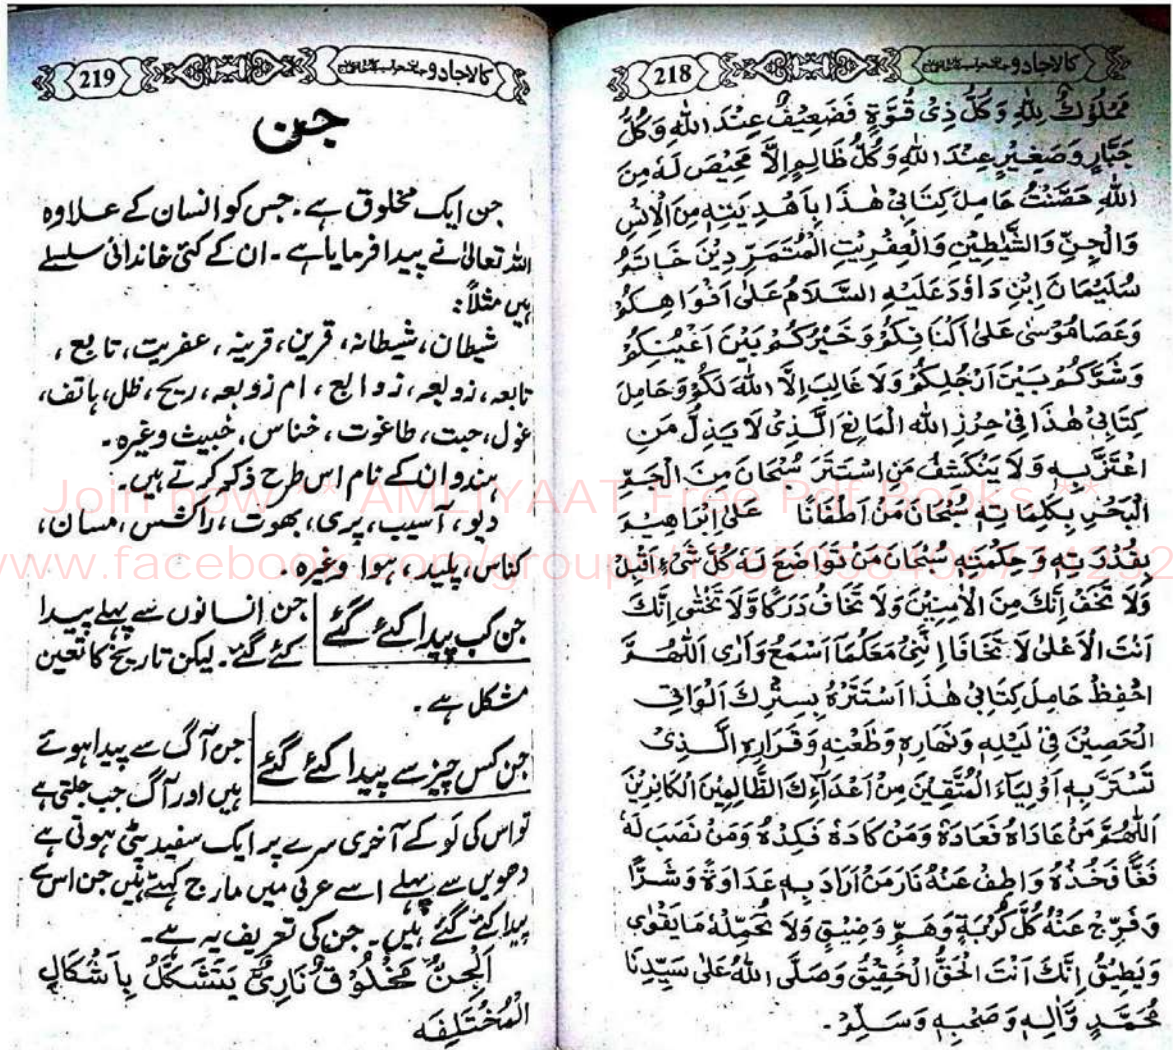 218
کالا جادو
مَمْلُوْكٌ لِلّٰهِ وَكُلُّ ذِیْ قُوَّةٍ فَضَعِيْفٌ عِنْدَ اللهِ وَكُلُّ
جَبَّارٍ وَصَغِيْرٍ عِنْدَ اللهِ وَكُلُّ ظَالِمٍ اِلَّا مَحِيْصَ لَهٗ مِنَ
اللهِ حَصَّنْتُ حَامِلَ كِتَابِیْ هٰذَا بِاَهْدِيَتِهٖ مِنَ الْاِنْسِ
وَالْجِنِّ وَالشَّيٰطِيْنِ وَالْعِفْرِيْتِ الْمُتَمَرِّدِيْنَ خَاتَمُ
سُلَيْمَانَ ابْنِ دَاوٗدَ عَلَيْهِ السَّلَامُ عَلٰى اَفْوَاهِكُمْ
وَعَصَا مُوْسٰى عَلٰى اَكْنَافِكُمْ وَخَيْرُكُمْ بَيْنَ اَعْيُنِكُمْ
وَشَرُّكُمْ بَيْنَ اَرْجُلِكُمْ وَلَا غَالِبَ اِلَّا اللهَ لَكُمْ وَحَامِلَ
كِتَابِیْ هٰذَا فِیْ حِرْزِ اللهِ الْمَانِعِ الَّذِیْ لَا يَذِلُّ مَنِ
اعْتَزَّ بِهٖ وَلَا يَنْكَشِفُ مَنِ اسْتَتَرَ سُبْحَانَ مِنَ الْجَمِّ
الْبَحْرِ بِكَلِمَاتِهٖ سُبْحَانَ مَنْ اَطْفَانًا عَلٰى اِبْرَاهِيْمَ
بِقُدْرَتِهٖ وَحِكْمَتِهٖ سُبْحَانَ مَنْ تَوَاضَعَ لَهٗ كُلُّ شَیْءٍ اَقْبِلْ
وَلَا تَخَفْ اِنَّكَ مِنَ الْاٰمِنِيْنَ وَلَا تَخَافُ دَرَكًا وَّلَا تَخْشٰى اِنَّكَ
اَنْتَ الْاَعْلٰى لَا تَخَافَا اِنَّنِیْ مَعَكُمَا اَسْمَعُ وَاَرٰى اَللّٰهُمَّ
احْفِظْ حَامِلَ كِتَابِیْ هٰذَا اَسْتَتَرَهٗ بِسِتْرِكَ الْوَافِی
الْحَصِيْنَ فِیْ لَيْلِهٖ وَنَهَارِهٖ وَظَعْنِهٖ وَقَرَارِهِ الَّذِیْ
تَسْتَرُ بِهٖ اَوْلِيَاءَ الْمُتَّقِيْنَ مِنْ اَعْدَآئِكَ الظَّالِمِيْنَ الْكَافِرِيْنَ
اَللّٰهُمَّ مَنْ عَادَاهُ فَعَادَهٗ وَمَنْ كَادَهٗ فَكِدْهُ وَمَنْ نَصَبَ لَهٗ
فَغًّا فَخُذْهُ وَاطْفِ عَنْهُ نَارَ مَنْ اَرَادَ بِهٖ عَدَاوَةً وَشَرًّا
وَفَرِّجْ عَنْهُ كُلَّ كُرْبَةٍ وَهَمٍّ وَضِيْقٍ وَلَا تُحَمِّلْهُ مَا يَقْوٰى
وَيُطِيْقُ اِنَّكَ اَنْتَ الْحَقُّ الْحَقِيْقُ وَصَلَّى اللهُ عَلٰى سَيِّدِنَا
مُحَمَّدٍ وَّاٰلِهٖ وَصَحْبِهٖ وَسَلِّمْ۔
219
کالا جادو
جن
جن ایک مخلوق ہے۔ جس کو انسان کے علاوہ
اللہ تعالیٰ نے پیدا فرمایا ہے۔ ان کے کئی خاندانی سلسلے
ہیں مثلاً:
شیطان، شیطانہ، قرین، قرینہ، عفریت، تابع،
تابعہ، زوبعہ، زوابع، ام زوبعہ، ریح، ظل، ہاتف،
غول، جبت، طاغوت، خناس، خبیث وغیرہ۔
ہندو ان کے نام اس طرح ذکر کرتے ہیں۔
دیو، آسیب، پری، بھوت، راکشس، مسان،
کناس، پلید، ہوا وغیرہ۔
جن کب پیدا کئے گئے
جن انسانوں سے پہلے پیدا
کئے گئے۔ لیکن تاریخ کا تعین
مشکل ہے۔
جن کس چیز سے پیدا کئے گئے
جن آگ سے پیدا ہوئے
ہیں اور آگ جب جلتی ہے
تو اس کی لَو کے آخری سرے پر ایک سفید پٹی ہوتی ہے
دھویں سے پہلے اسے عربی میں مارج کہتے ہیں جن اس سے
پیدا کئے گئے ہیں۔ جن کی تعریف یہ ہے۔
اَلْجِنُّ مَخْلُوْقٌ نَارِیٌّ يَتَشَكَّلُ بِاَشْكَالٍ
الْمُخْتَلِفَه
Join now ** AMLIYAAT Free Pdf Books **